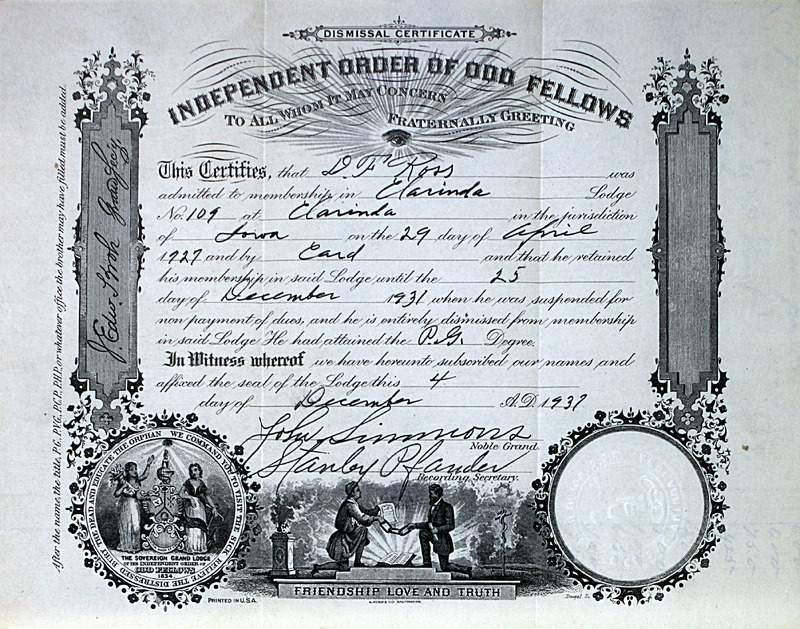 DISMISSAL CERTIFICATE
INDEPENDENT ORDER OF ODD FELLOWS
TO ALL WHOM IT MAY CONCERN
FRATERNALLY GREETING
This Certifies, that D. F. Ross was
admitted to membership in Clarinda Lodge
No. 109 at Clarinda in the jurisdiction
of Iowa on the 29 day of April
1927 and by Card and that he retained
his membership in said Lodge until the 25
day of December 1931 when he was suspended for
non payment of dues, and he is entirely dismissed from membership
in said Lodge He had attained the P.G. Degree.
In Witness whereof we have hereunto subscribed our names and
affixed the seal of the Lodge this 4
day of December A.D. 1937
John Simmons
Noble Grand.
Stanley Pfander
Recording Secretary.
J Edw. Kroh Grand Secy
After the name, the title, P.G., P.V.G., P.C.P., P.H.P. or whatever office the brother may have filled must be added.
WE COMMAND YOU TO VISIT THE SICK, RELIEVE THE DISTRESSED, BURY THE DEAD AND EDUCATE THE ORPHAN
THE SOVEREIGN GRAND LODGE
OF THE INDEPENDENT ORDER OF
ODD FELLOWS
1834
FRIENDSHIP LOVE AND TRUTH
PRINTED IN U.S.A.